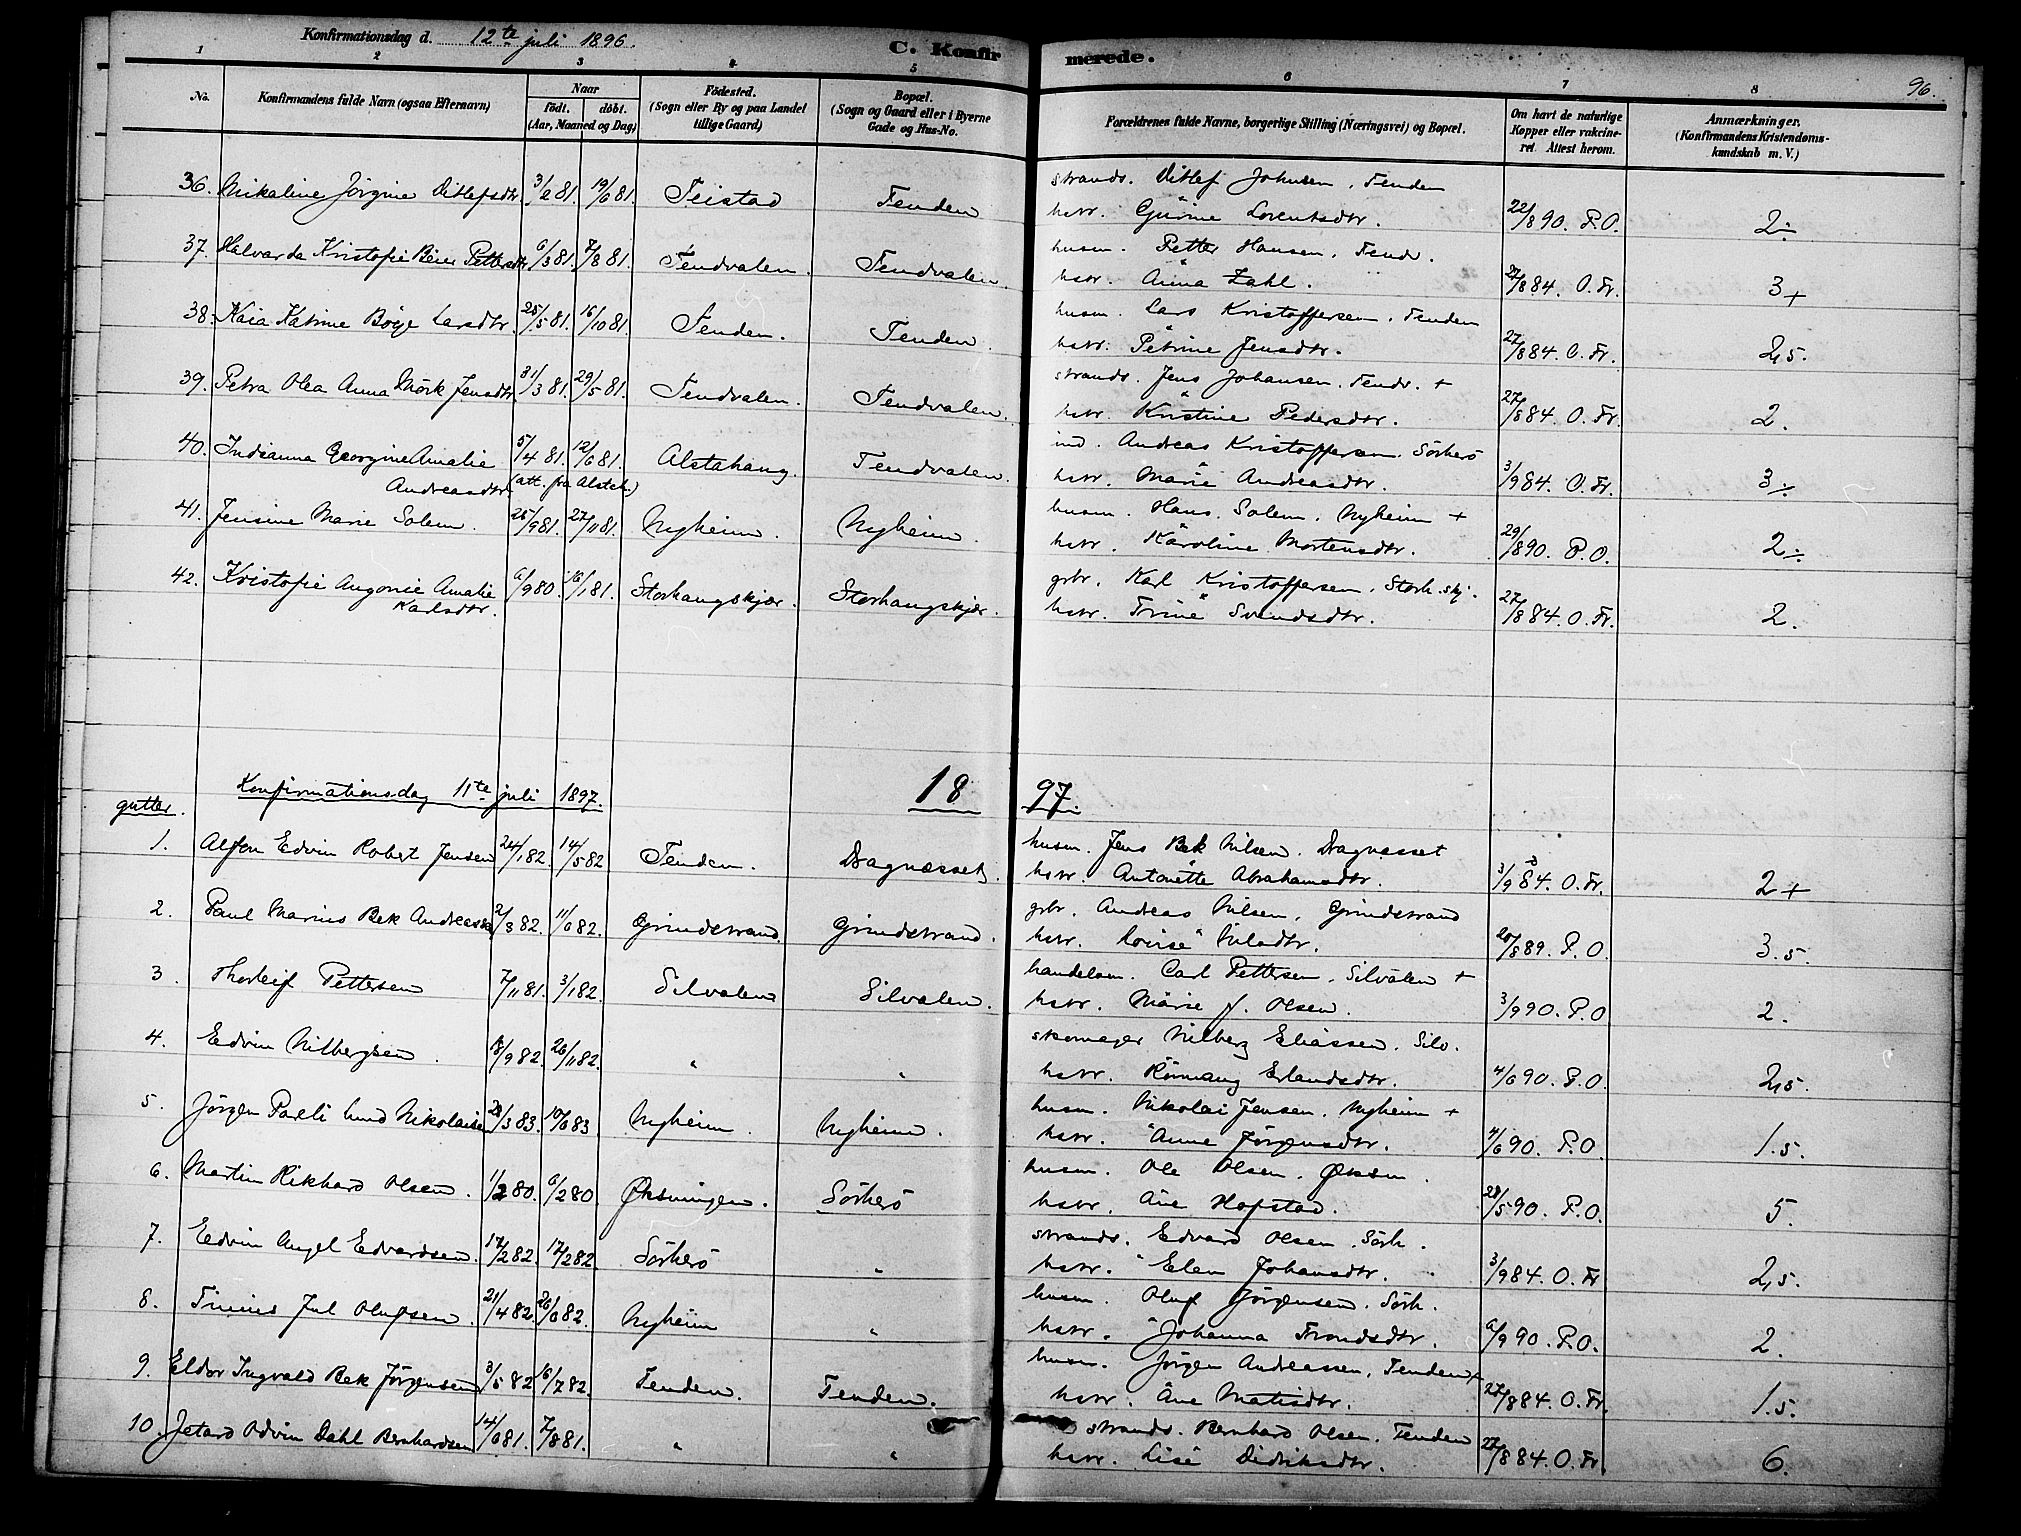 Konfirmationsdag d. 12te juli 1896. C. Konfirmerede. 96.
1 2 3 4 5 6 7 8
No. Konfirmandens fulde Navn (ogsaa Efternavn) Naar født. døbt. (Aar, Maaned og Dag) Fødested. (Sogn eller By og paa Landet tillige Gaard) Bopæl. (Sogn og Gaard eller i Byerne Gade og Hus-No. Forældrenes fulde Navne, borgerlige Stilling (Næringsvei) og Bopæl. Om havt de naturlige Kopper eller vakcineret. Attest herom. Anmærkninger, (Konfirmandens Kristendomskundskab m. V.)
36. Mikaline Jørgine Ditlefsdtr. 3/2 81. 19/6 81. Teistad Tenden strands. Ditlef Johnsen, Tenden
hstr. Gurine Lorentsdtr. 22/8 90. P.O. 2÷
37. Halvarda Kristofie Beier Pettersdtr 6/3 81. 7/8 81. Tendvalen. Tendvalen husm. Petter Hansen, Tendv.
hstr. Anna Zahl. 27/8 84. O. Fr. 3+
38. Kaia Katrine Böge Larsdtr. 25/5 81. 16/10 81. Tenden. Tenden. husm. Lars Kristoffersen, Tenden
hstr. Petrine Jensdtr. 27/8 84. O. Fr. 2,5.
39. Petra Olea Anna Mörk Jensdtr. 31/3 81. 29/5 81. Tendvalen. Tendvalen. strands. Jens Johansen, Tendv. +
hstr. Kristine Pedersdtr. 27/8 84. O. Fr. 2.
40. Indianna Georgine Amalie 5/4 81. 12/6 81. Alstahaug. Tendvalen. ind. Andreas Kristoffersen, Sörherö
Andreasdtr. (att. fra Alstah.) hstr. Marie Andreasdtr. 3/9 84. O. Fr. 3÷
41. Jensine Marie Solem. 25/9 81. 27/11 81. Nyheim. Nyheim. husm. Hans Solem, Nyheim +
hstr. Karoline Mortensdtr. 29/8 90. P.O. 2÷
42. Kristofie Augonie Amalie 6/9 80. 16/1 81. Storhaugskjær. Storhaugskjær. grbr. Karl Kristoffersen, Storh.skj.
Karlsdtr. hstr. Trine Svendsdtr. 27/8 84. O. Fr. 2.
Konfirmationsdag 11te juli 1897. 18 97.
gutter.
1. Alfon Edvin Robert Jensen 24/1 82. 14/5 82 Tenden. Dragnesset. husm. Jens Bek Nilsen, Dragnesset
hstr. Antonette Abrahamsdtr. 3/9 84. O. Fr. 2+
2. Paul Marius Bek Andreassen 2/3 82. 11/6 82. Grindstrand. Grindstrand. grbr. Andreas Nilsen, Grindstrand
hstr. Lovise Nilsdtr. 20/8 89. P.O. 3.5.
3. Thorleif Pettersen 7/11 81. 3/1 82. Silvalen Silvalen. handelsm. Carl Pettersen, Silvalen +
hstr. Marie f. Olsen. 3/9 90. P.O 2.
4. Edvin Nilbergsen. 18/9 82. 26/11 82. " " skomager Nilberg Eliassen, Silv.
hstr. Rønnaug Erlandsdtr. 4/6 90. P.O. 2,5.
5. Jörgen Pareli Lund Nikolaisen 28/3 83. 10/6 83 Nyheim. Nyheim. husm. Nikolai Jensen, Nyheim +
hstr. Anne Jörgensdtr. 4/6 90. P.O. 1.5.
6. Martin Rikhard Olsen. 1/2 80. 6/2 80 Øksningen. Sörherö husm. Ole Olsen, Øksn.
hstr. Ane Hofstad. 28/5 90. P.O. 5.
7. Edvin Angel Edvardsen. 17/2 82. 17/2 82. Sörherö " strands. Edvard Olsen, Sörh.
hstr. Elen Johansdtr. 3/9 84. O. Fr 2,5.
8. Trinius Jul Olufsen. 21/4 82. 26/6 82. Nyheim " husm. Oluf Jörgensen, Sörh.
hstr. Johanna Trondsdtr. 6/9 90. P.O. 2.
9. Eldor Ingvald Bek Jörgensen 3/5 82 16/7 82. Tenden. Tenden. husm. Jörgen Andreassen, Tenden +
hstr. Ane Matisdtr. 27/8 84. O. Fr. 1.5.
10. Jetard Odvin Dahl Bernhardsen 14/6 81. 7/8 81. " " strands. Bernhard Olsen, Tenden
hstr. Lise Didriksdtr. 27/8 84. O. Fr. 6.